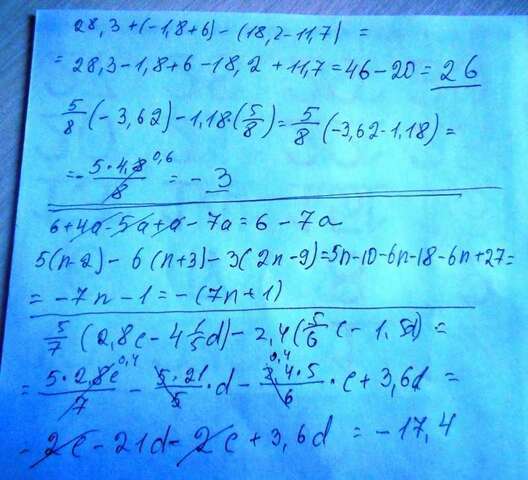 28,3+(-1,8+6)-(18,2-11,7)=
=28,3-1,8+6-18,2+11,7=46-20=26
5/8(-3,62)-1,18·(5/8)=5/8(-3,62-1,18)=
=-5·4,8 0,6/8=-3
6+4a-5a+a-7a=6-7a
5(n-2)-6(n+3)-3(2n-9)=5n-10-6n-18-6n+27=
=-7n-1=-(7n+1)
5/7(2,8c-4 1/5d)-2,4(5/6c-1,5d)=
=5·2,8c 0,4/7-5·21/5·d-2,4·5 0,4/6·c+3,6d=
-2c-21d-2c+3,6d=-17,4